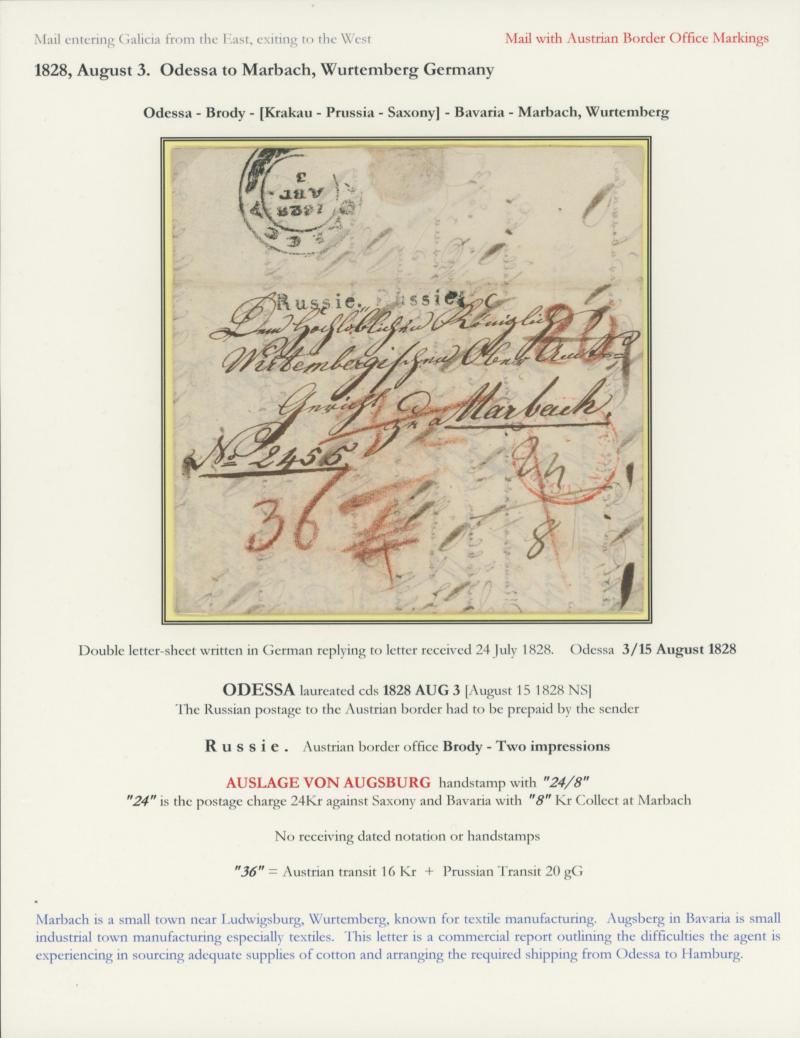 Mail entering Galicia from the East, exiting to the West
Mail with Austrian Border Office Markings
1828, August 3. Odessa to Marbach, Wurtemberg Germany
Odessa - Brody - [Krakau - Prussia - Saxony] - Bavaria - Marbach, Wurtemberg
ОДЕССА
1828
АВГ.
3
Russie. Russie.
Dem Hochlöblichen Königlich
Würtembergischen Ober Amts=
Gericht
zu Marbach.
No 2455.
36
8
Double letter-sheet written in German replying to letter received 24 July 1828. Odessa 3/15 August 1828
ODESSA laureated cds 1828 AUG 3 [August 15 1828 NS]
The Russian postage to the Austrian border had to be prepaid by the sender
Russie. Austrian border office Brody - Two impressions
AUSLAGE VON AUGSBURG handstamp with "24/8"
"24" is the postage charge 24Kr against Saxony and Bavaria with "8" Kr Collect at Marbach
No receiving dated notation or handstamps
"36" = Austrian transit 16 Kr + Prussian Transit 20 gG
Marbach is a small town near Ludwigsburg, Wurtemberg, known for textile manufacturing. Augsberg in Bavaria is small
industrial town manufacturing especially textiles. This letter is a commercial report outlining the difficulties the agent is
experiencing in sourcing adequate supplies of cotton and arranging the required shipping from Odessa to Hamburg.